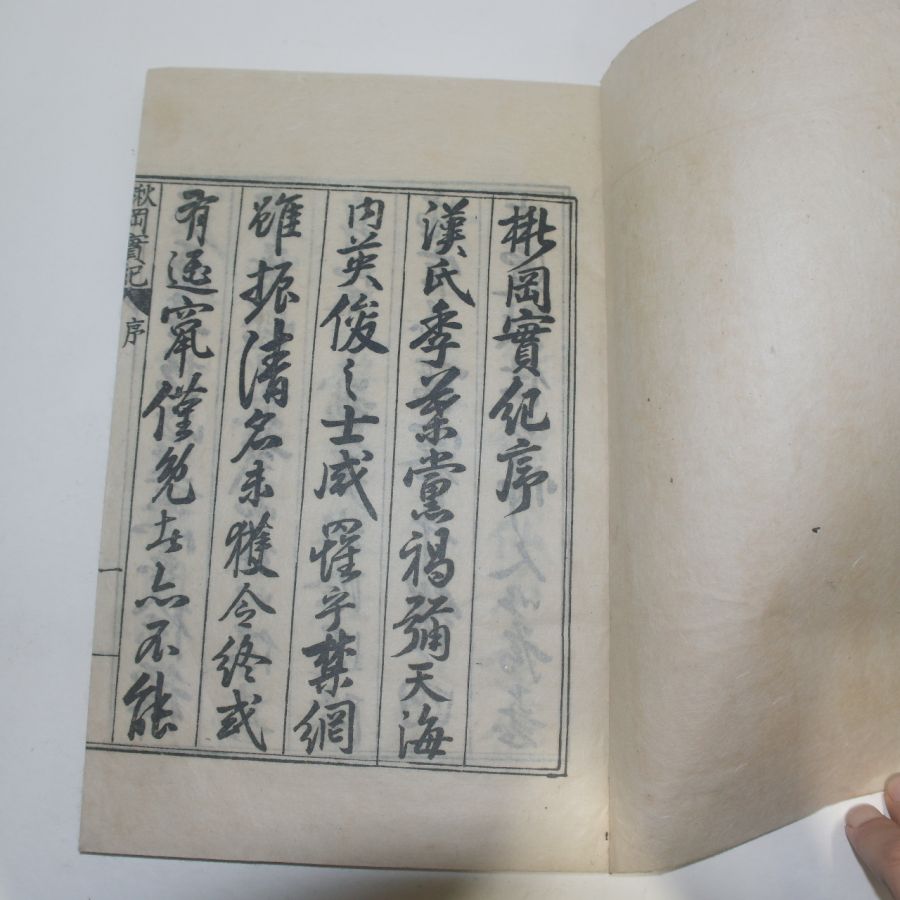 楸岡實紀序
漢氏季葉黨禍彌天海
内英俊之士咸罹乎禁網
雖振清名未獲令終或
有遯竄僅免者亦不能
楸岡實紀 序 一